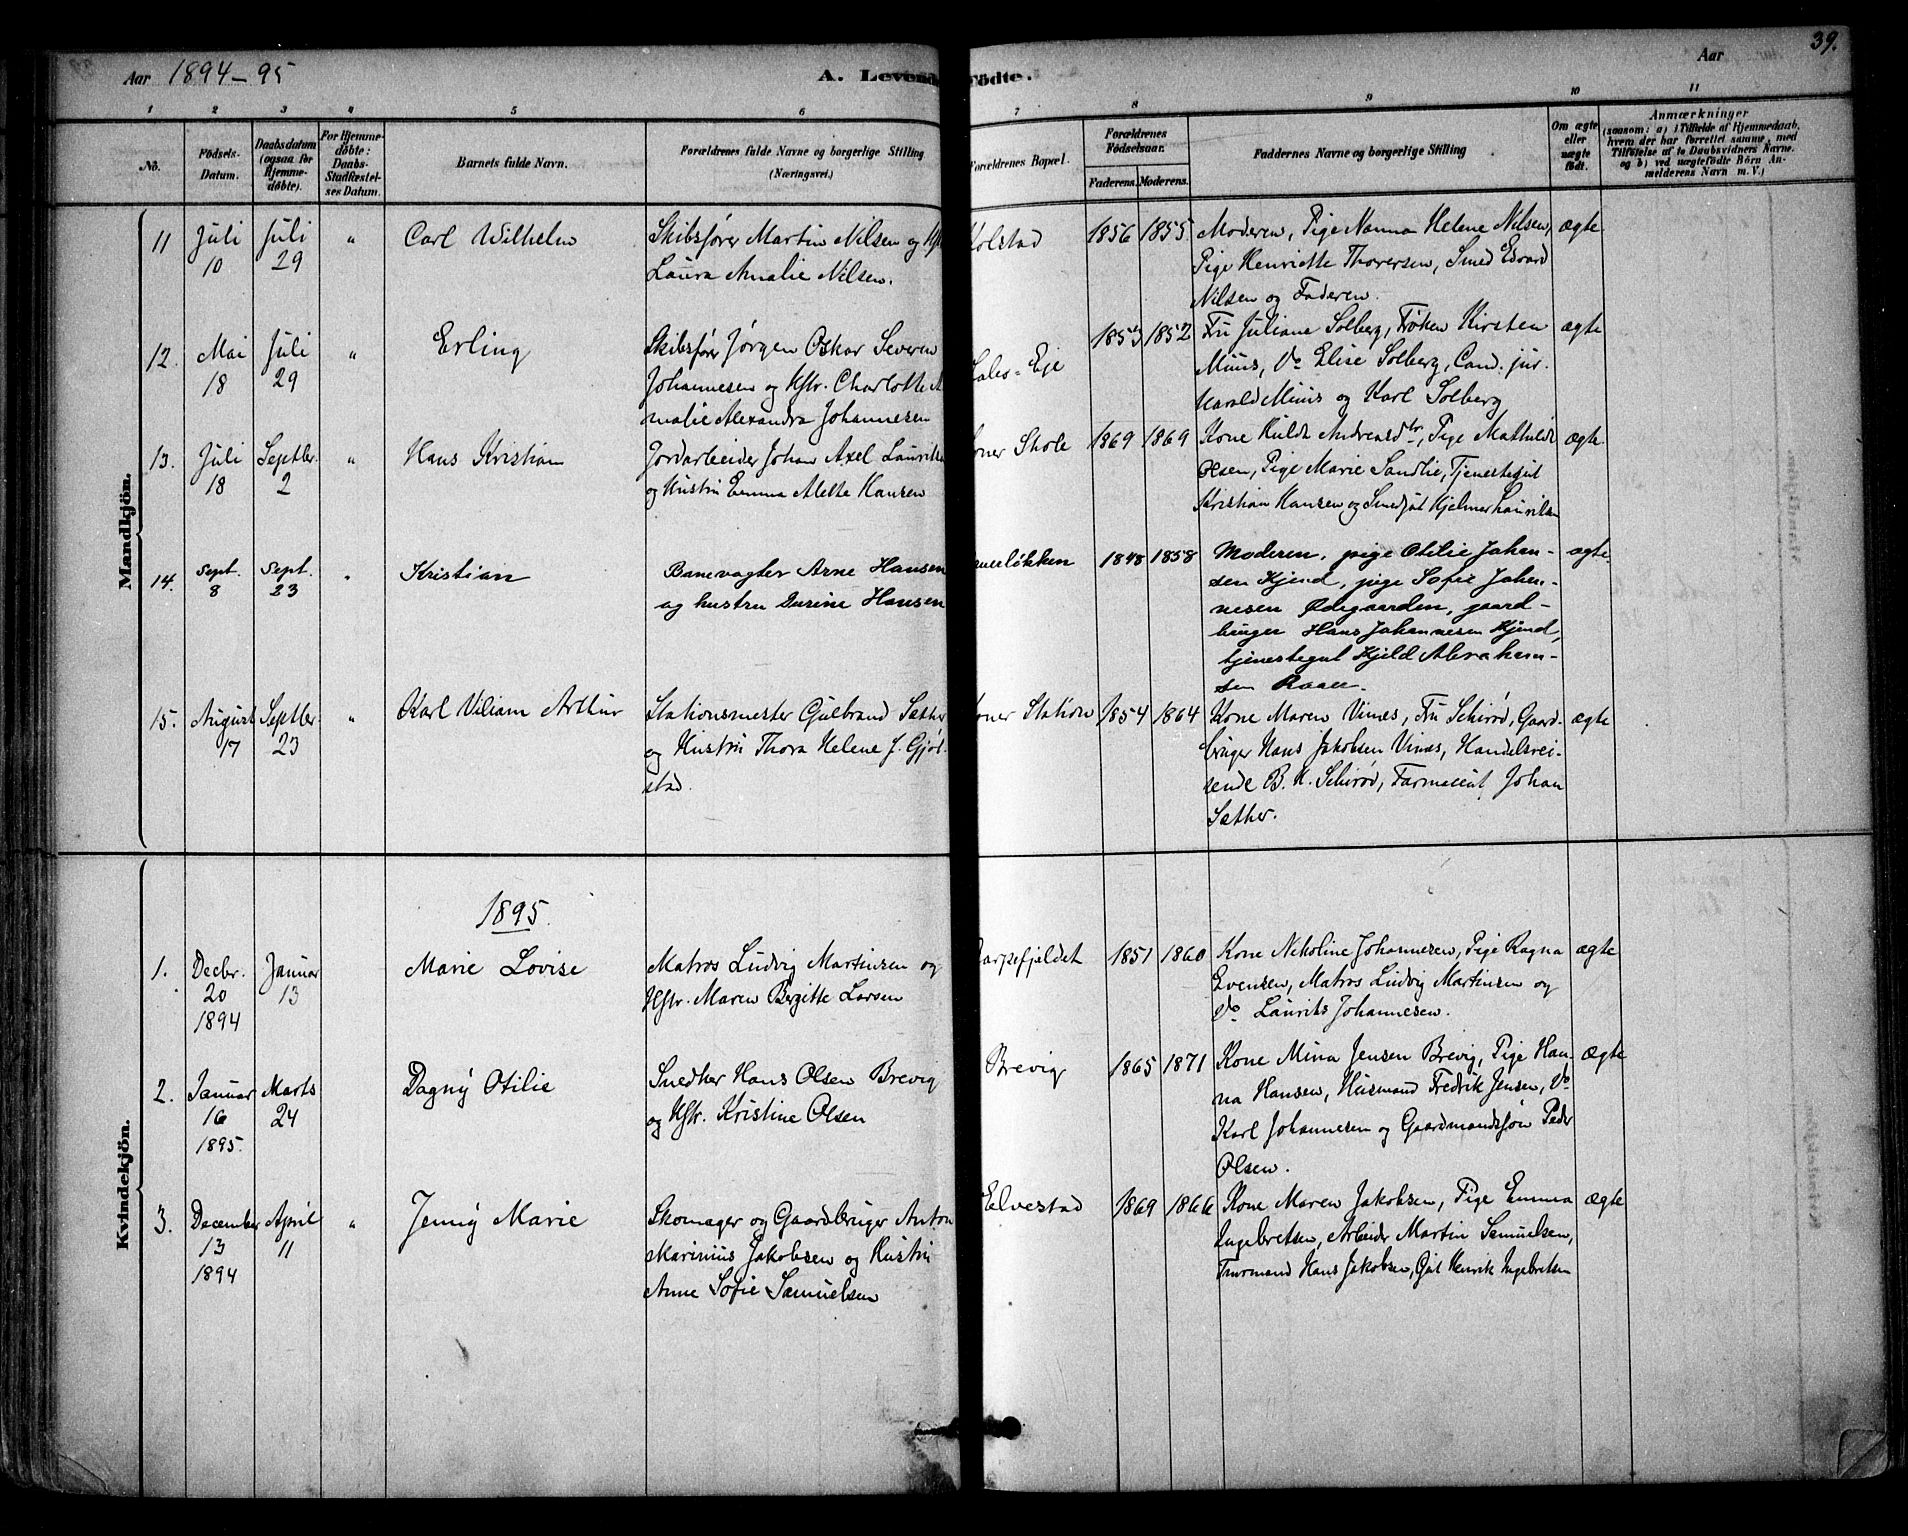 39.
Aar 1894-95
A. Levende Fødte.
Aar
1 2 3 4 5 6 7 8 9 10 11
No.
Födsels-Datum.
Daabsdatum (ogsaa for Hjemme-døbte).
For Hjemme-døbte: Daabs-Stadfæstel-ses Datum.
Barnets fulde Navn.
Forældrenes fulde Navne og borgerlige Stilling (Næringsvei.)
Forældrenes Bopæl.
Forældrenes Födselsaar.
Faderens. Moderens.
Faddernes Navne og borgerlige Stilling
Om ægte eller uægte født.
Anmærkninger
(saasom: a) i Tilfælde af Hjemmedaab,
hvem der har forrettet samme, med
Tilföielse af to Daabsvidners Navne.
og b) ved uægtefødte Börn An-
melderens Navn m. V.)
Mandkjön.
11 Juli 10 Juli 29 " Carl Wilhelm
Skibsfører Martin Nilsen og Hstr.
Laura Amalie Nilsen.
Kolstad 1856 1855
Moderen, Pige Nanna Helene Nilsen,
Pige Henriette Thoversen, Smed Edvard
Nilsen og Faderen.
ægte
12. Mai 18 Juli 29 " Erling
Skibsfører Jørgen Oskar Severin
Johannesen og Hstr. Charlotte A
malie Alexandra Johannesen
Eje 1853 1852
Fru Juliane Solberg, Frøken Kirsten
Müns, Do Elise Solberg, Cand. jur.
Harald Müns og Karl Solberg
ægte
13. Juli 18 Septbr. 2 " Hans Kristian
Jordarbeider Johan Axel
og Hustru Emma Alette Hansen
Skole 1869 1869
Kone Huldt Andreasdtr, Pige Mathilde
Olsen, Pige Marie Sandlie, Tjenestegut
Kristian Hansen og Smedgut Hjelmer Lauritsen
ægte
14. Sept. 8 Sept. 23 " Kristian
Banevogter Arne Hansen
og hustru Surine Hansen
1848 1858
Moderen, pige Otilie Johan-
sen Kjend, pige Sofie Johan-
nesen Ødegaarden, gaard-
bruger Hans Johannesen Kjend,
tjenestegut Kjeld Abraham-
sen Raaer.
ægte
15. August 17 Septbr 23 " Karl Viliam Arthur
Stationsmester Gulbrand Sæther
og Hustru Thora Helene J. Gjøl-
stad.
Station 1854 1864
Kone Maren Vinæs, Fru Schirød, Gaard-
bruger Hans Jakobsen Vinæs, Handelsrei-
sende B. H. Schirød, Farmaceut Johan
Sæther.
ægte
Kvindekjön.
1895.
1. Decbr. 20 1894 Januar 13 Marie Lovise
Matros Ludvig Martinsen og
Hstr. Maren Bergitte Larsen
1851 1860
Kone Nikoline Johannesen, Pige Ragna
Evensen, Matros Ludvig Martinsen og
Do Laurits Johannesen.
ægte
2. Januar 16 1895. Marts 24 Dagny Otilie
Snedker Hans Olsen Brevig
og Hstr. Kristine Olsen
Brevig 1865 1871
Kone Mina Jensen Brevig, Pige Han-
na Hansen, Husmand Fredrik Jensen, Do
Karl Johannesen og Gaardmandssøn Peder
Olsen.
ægte
3. December 13 1894 April 11 " Jenny Marie
Skomager og Gaardbruger Anton
Marinius Jakobsen og Hustru
Anne Sofie Samuelsen
Elvestad 1869 1866
Kone Maren Jakobsen, Pige Emma
Ingebretsen, Arbeider Martin Samuelsen,
Hans Jakobsen, Gut Henrik Ingebretsen
ægte